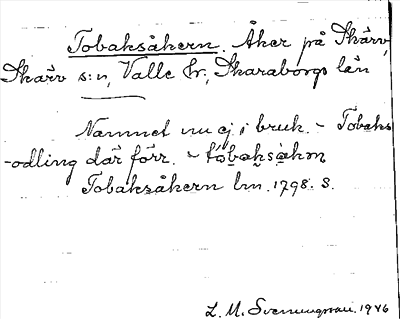 Tobaksåkern. Åker på Skärv,
Skärv s:n, Valle hr, Skaraborgs län
Namnet nu ej i bruk. - Tobaks
-odling där förr. - tóbaksàkɐn
Tobaksåkern lm. 1798. S.
L. M. Svenungsson. 1946